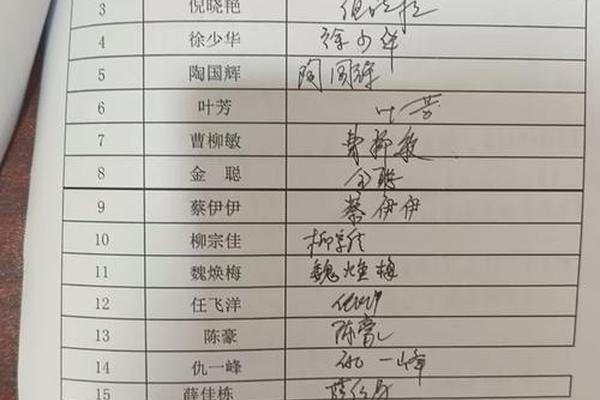 3 倪晓艳 倪晓艳
4 徐少华 徐少华
5 陶国辉 陶国辉
6 叶芳 叶芳
7 曹柳敏 曹柳敏
8 金 聪 金聪
9 蔡伊伊 蔡伊伊
10 柳宗佳 柳宗佳
11 魏焕梅 魏焕梅
12 任飞洋
13 陈豪 陈豪
14 仇一峰 仇一峰
15 薛佳栋